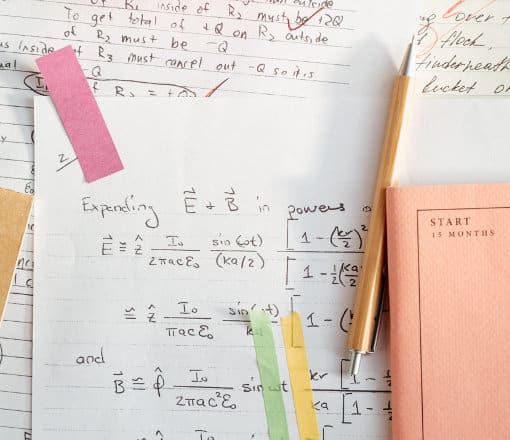 outside
R₁ inside of R₂ must be +2Q
To get total of +Q on R₂ outside
of R₂ must be -Q
inside of R₃ must cancel out -Q so it is
Q
of R₂ =
over
flock,
bucket
2.
Expending E⃗ + B⃗ in powers
E⃗ ≅ ẑ I₀/2πacε₀ sin(ωt)/(ka/2) [1 - (kr/2)²
[1 - ½(ka/2
≅ ẑ I₀/πacε₀ [1 - (
and
B⃗ ≅ φ̂ I₀/2πac²ε₀ sin ωt kr/ka [1 - ½
[1 - ½
I₀
START
15 MONTHS